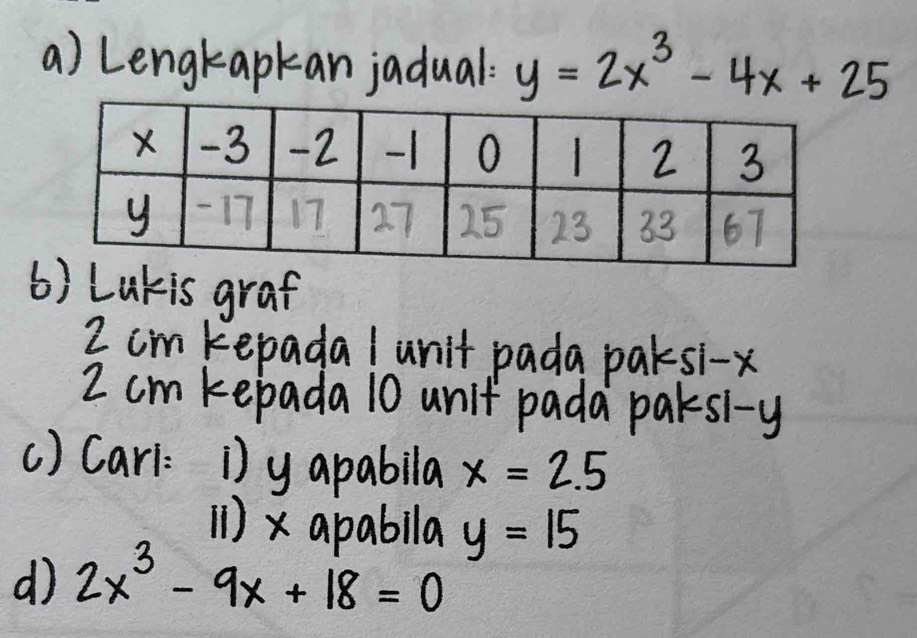 a) Lengkapkan jadual: y = 2x³ - 4x + 25
x -3 -2 -1 0 1 2 3
y -17 17 27 25 23 33 67
b) Lukis graf
2 cm kepada 1 unit pada paksi-x
2 cm kepada 10 unit pada paksi-y
c) Cari: i) y apabila x = 2.5
ii) x apabila y = 15
d) 2x³ - 9x + 18 = 0